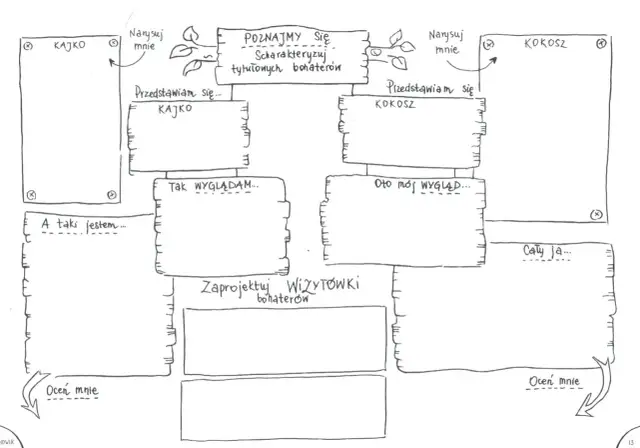 KAJKO
Narysuj
mnie
POZNAJMY SIĘ
Scharakteryzuj
tytułowych bohaterów
Narysuj
mnie
KOKOSZ
Przedstawiam się...
KAJKO
Przedstawiam się
KOKOSZ
Tak WYGLĄDAM...
Oto mój WYGLĄD...
A taki jestem...
Cały ja...
Zaprojektuj WIZYTÓWKI
bohaterów
Oceń mnie
Oceń mnie
13